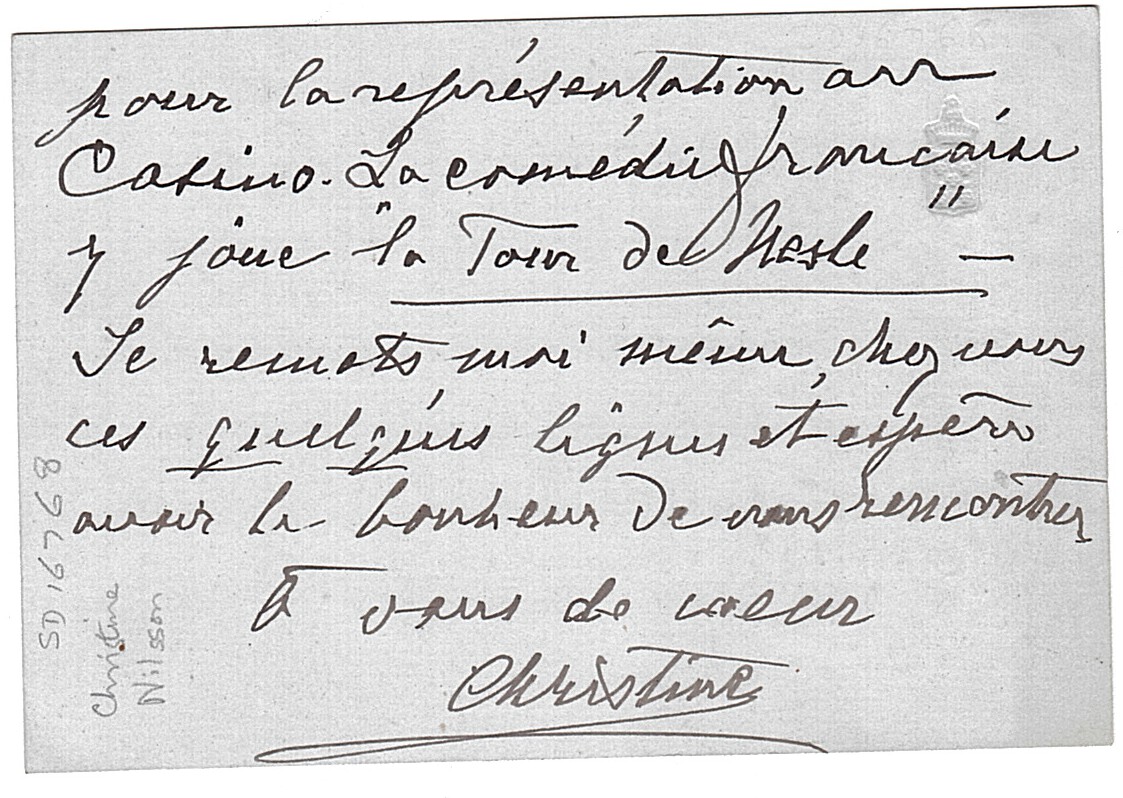 pour la représentation au
Casino. La comédie française
y joue "la Tour de Nesle" —
Je remets moi même chez vous
ces quelques lignes et espère
avoir le bonheur de vous rencontrer
à vous de coeur
Christine
SD 16768
Christine
Nilsson